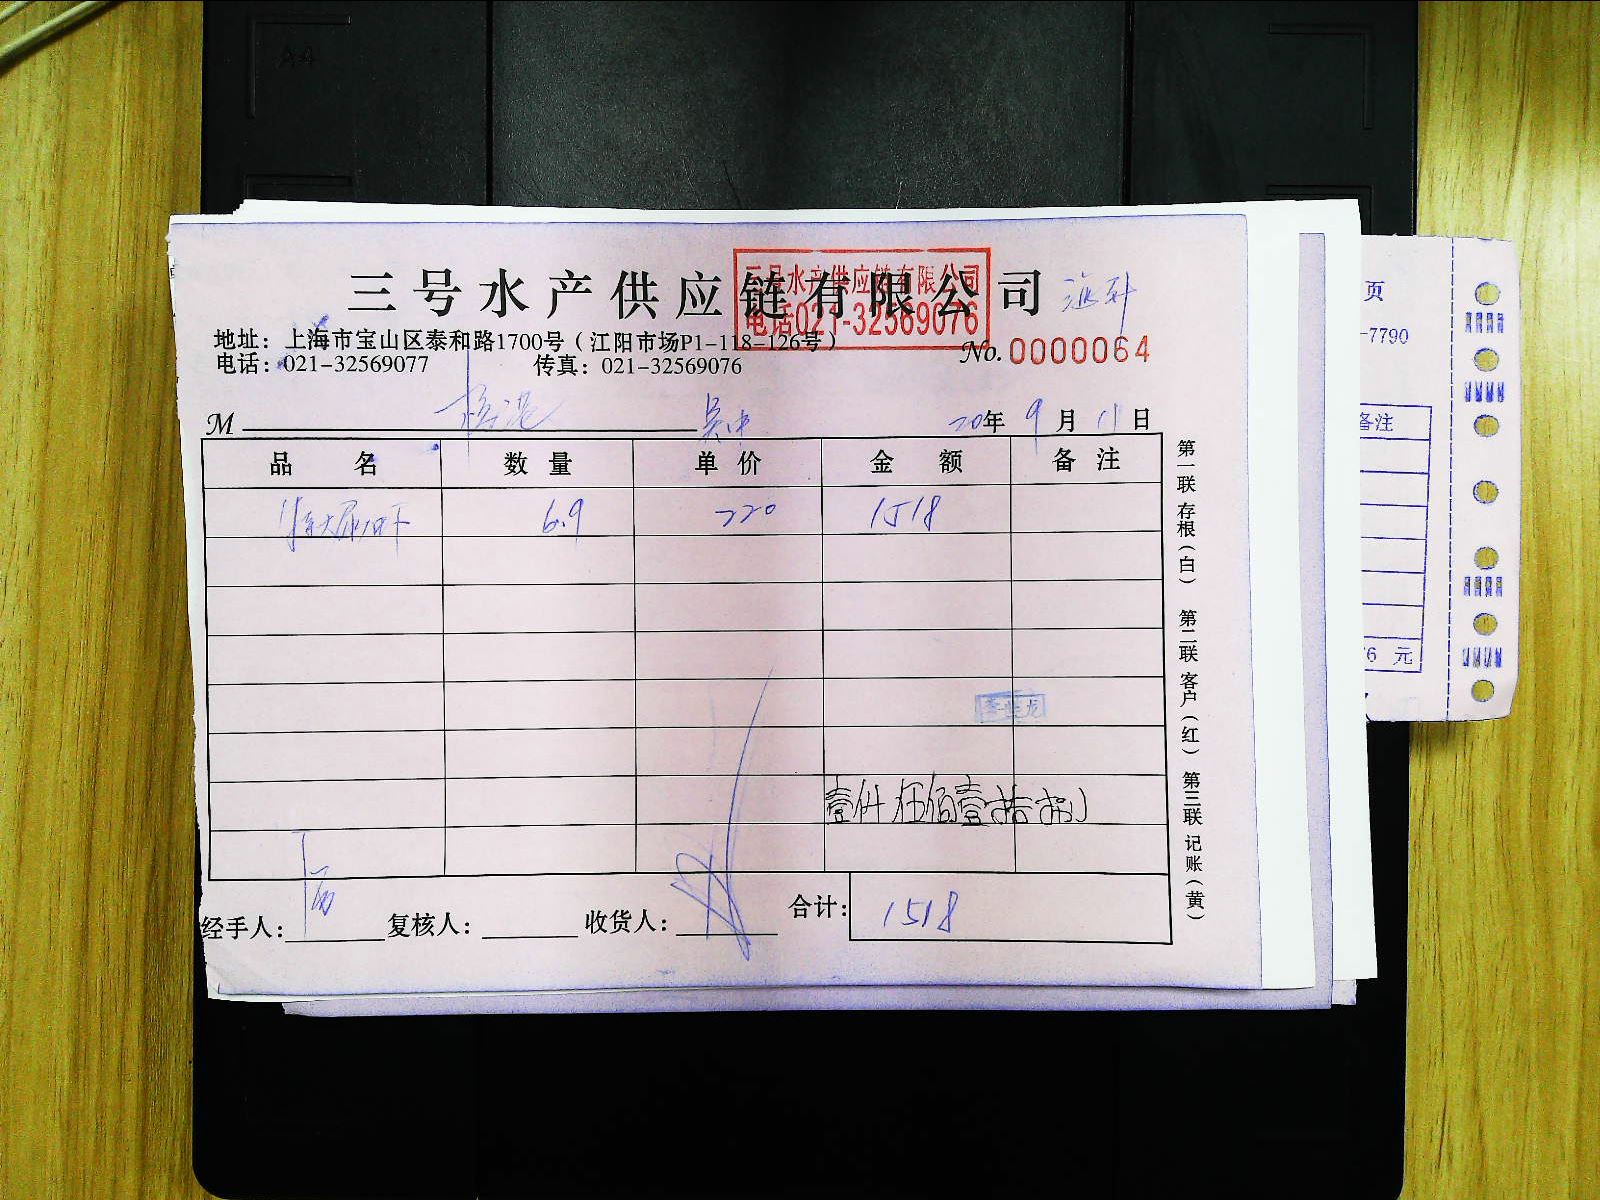 三号水产供应链有限公司
三号水产供应链有限公司
电话021-32569076
地址：上海市宝山区泰和路1700号（江阳市场P1-118-126号）
电话：021-32569077 传真：021-32569076
No.0000064
M 20年9月11日
品名 数量 单价 金额 备注
6.9 220 1518
壹仟伍佰壹拾捌
经手人： 复核人： 收货人： 合计：1518
第一联 存根（白） 第二联 客户（红） 第三联 记账（黄）
页
-7790
备注
76 元
A4